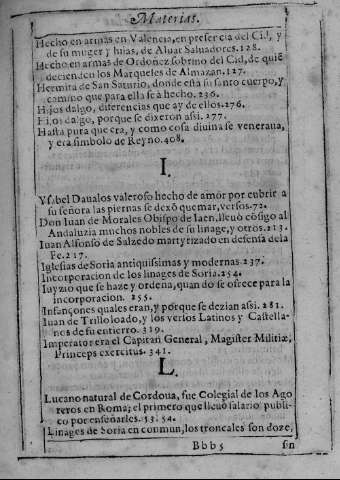 Materias.
Hecho en armas en Valencia, en presencia del Cid, y
de su muger y hijas, de Aluar Saluadores. 128.
Hecho en armas de Ordoñez sobrino del Cid, de quiẽ
decienden los Marqueses de Almazan. 127.
Hermita de San Saturio, donde està su santo cuerpo, y
camino que para ella se à hecho. 236.
Hijos dalgo, diferencias que ay de ellos. 276.
Hijos dalgo, porque se dixeron assi. 277.
Hasta pura que era, y como cosa diuina se veneraua,
y era simbolo de Reyno. 408.
I.
Ysabel Daualos valeroso hecho de amor por cubrir a
su señora las piernas se dexò quemar, versos. 72.
Don Iuan de Morales Obispo de Iaen, lleuò cõsigo al
Andaluzia muchos nobles de su linage, y otros. 213.
Iuan Alfonso de Salzedo martyrizado en defensa de la
Fe. 217.
Iglesias de Soria antiquissimas y modernas 237.
Incorporacion de los linages de Soria. 254.
Iuyzio que se haze y ordena, quando se ofrece para la
incorporacion. 255.
Infançones quales eran, y porque se dezian assi. 281.
Iuan de Trillo loado, y los versos Latinos y Castella-
nos de su entierro. 319.
Imperator era el Capitan General, Magister Militiæ,
Princeps exercitus. 341.
L.
Lucano natural de Cordoua, fue Colegial de los Ago
reros en Roma; el primero que lleuò salario publi-
co por enseñarles. 53. 54.
Linages de Soria en comun, los troncales son doze,
Bbb5 sin